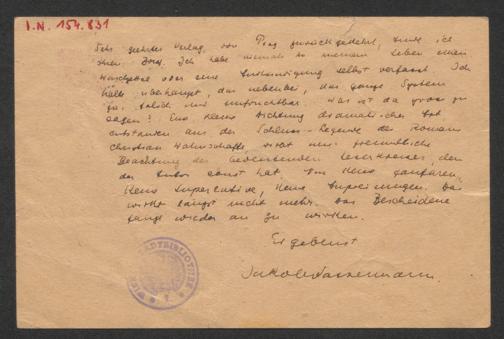 I.N. 154.831
Sehr geehrter Verlag, von Prag zurückgekehrt, finde ich
Ihren Brief. Ich habe niemals in meinem Leben einen
Waschzettel oder eine Ankündigung selbst verfasst. Ich
halte überhaupt, das nebenbei, das ganze System
für falsch und unfruchtbar. Was ist da gross zu
sagen? Eine kleine Dichtung dramatischer Art
entstanden aus der Schluss-Legende des Romans
Christian Wahnschaffe, wirbt um freundliche
Beachtung des Leserkreises, den
der Autor sonst hat. Nur keine Fanfaren,
keine Superlative, keine Anpreisungen. Das
wirkt längst nicht mehr. Das Bescheidene
fängt wieder an zu wirken.
Ergebenst
Jakob Wassermann